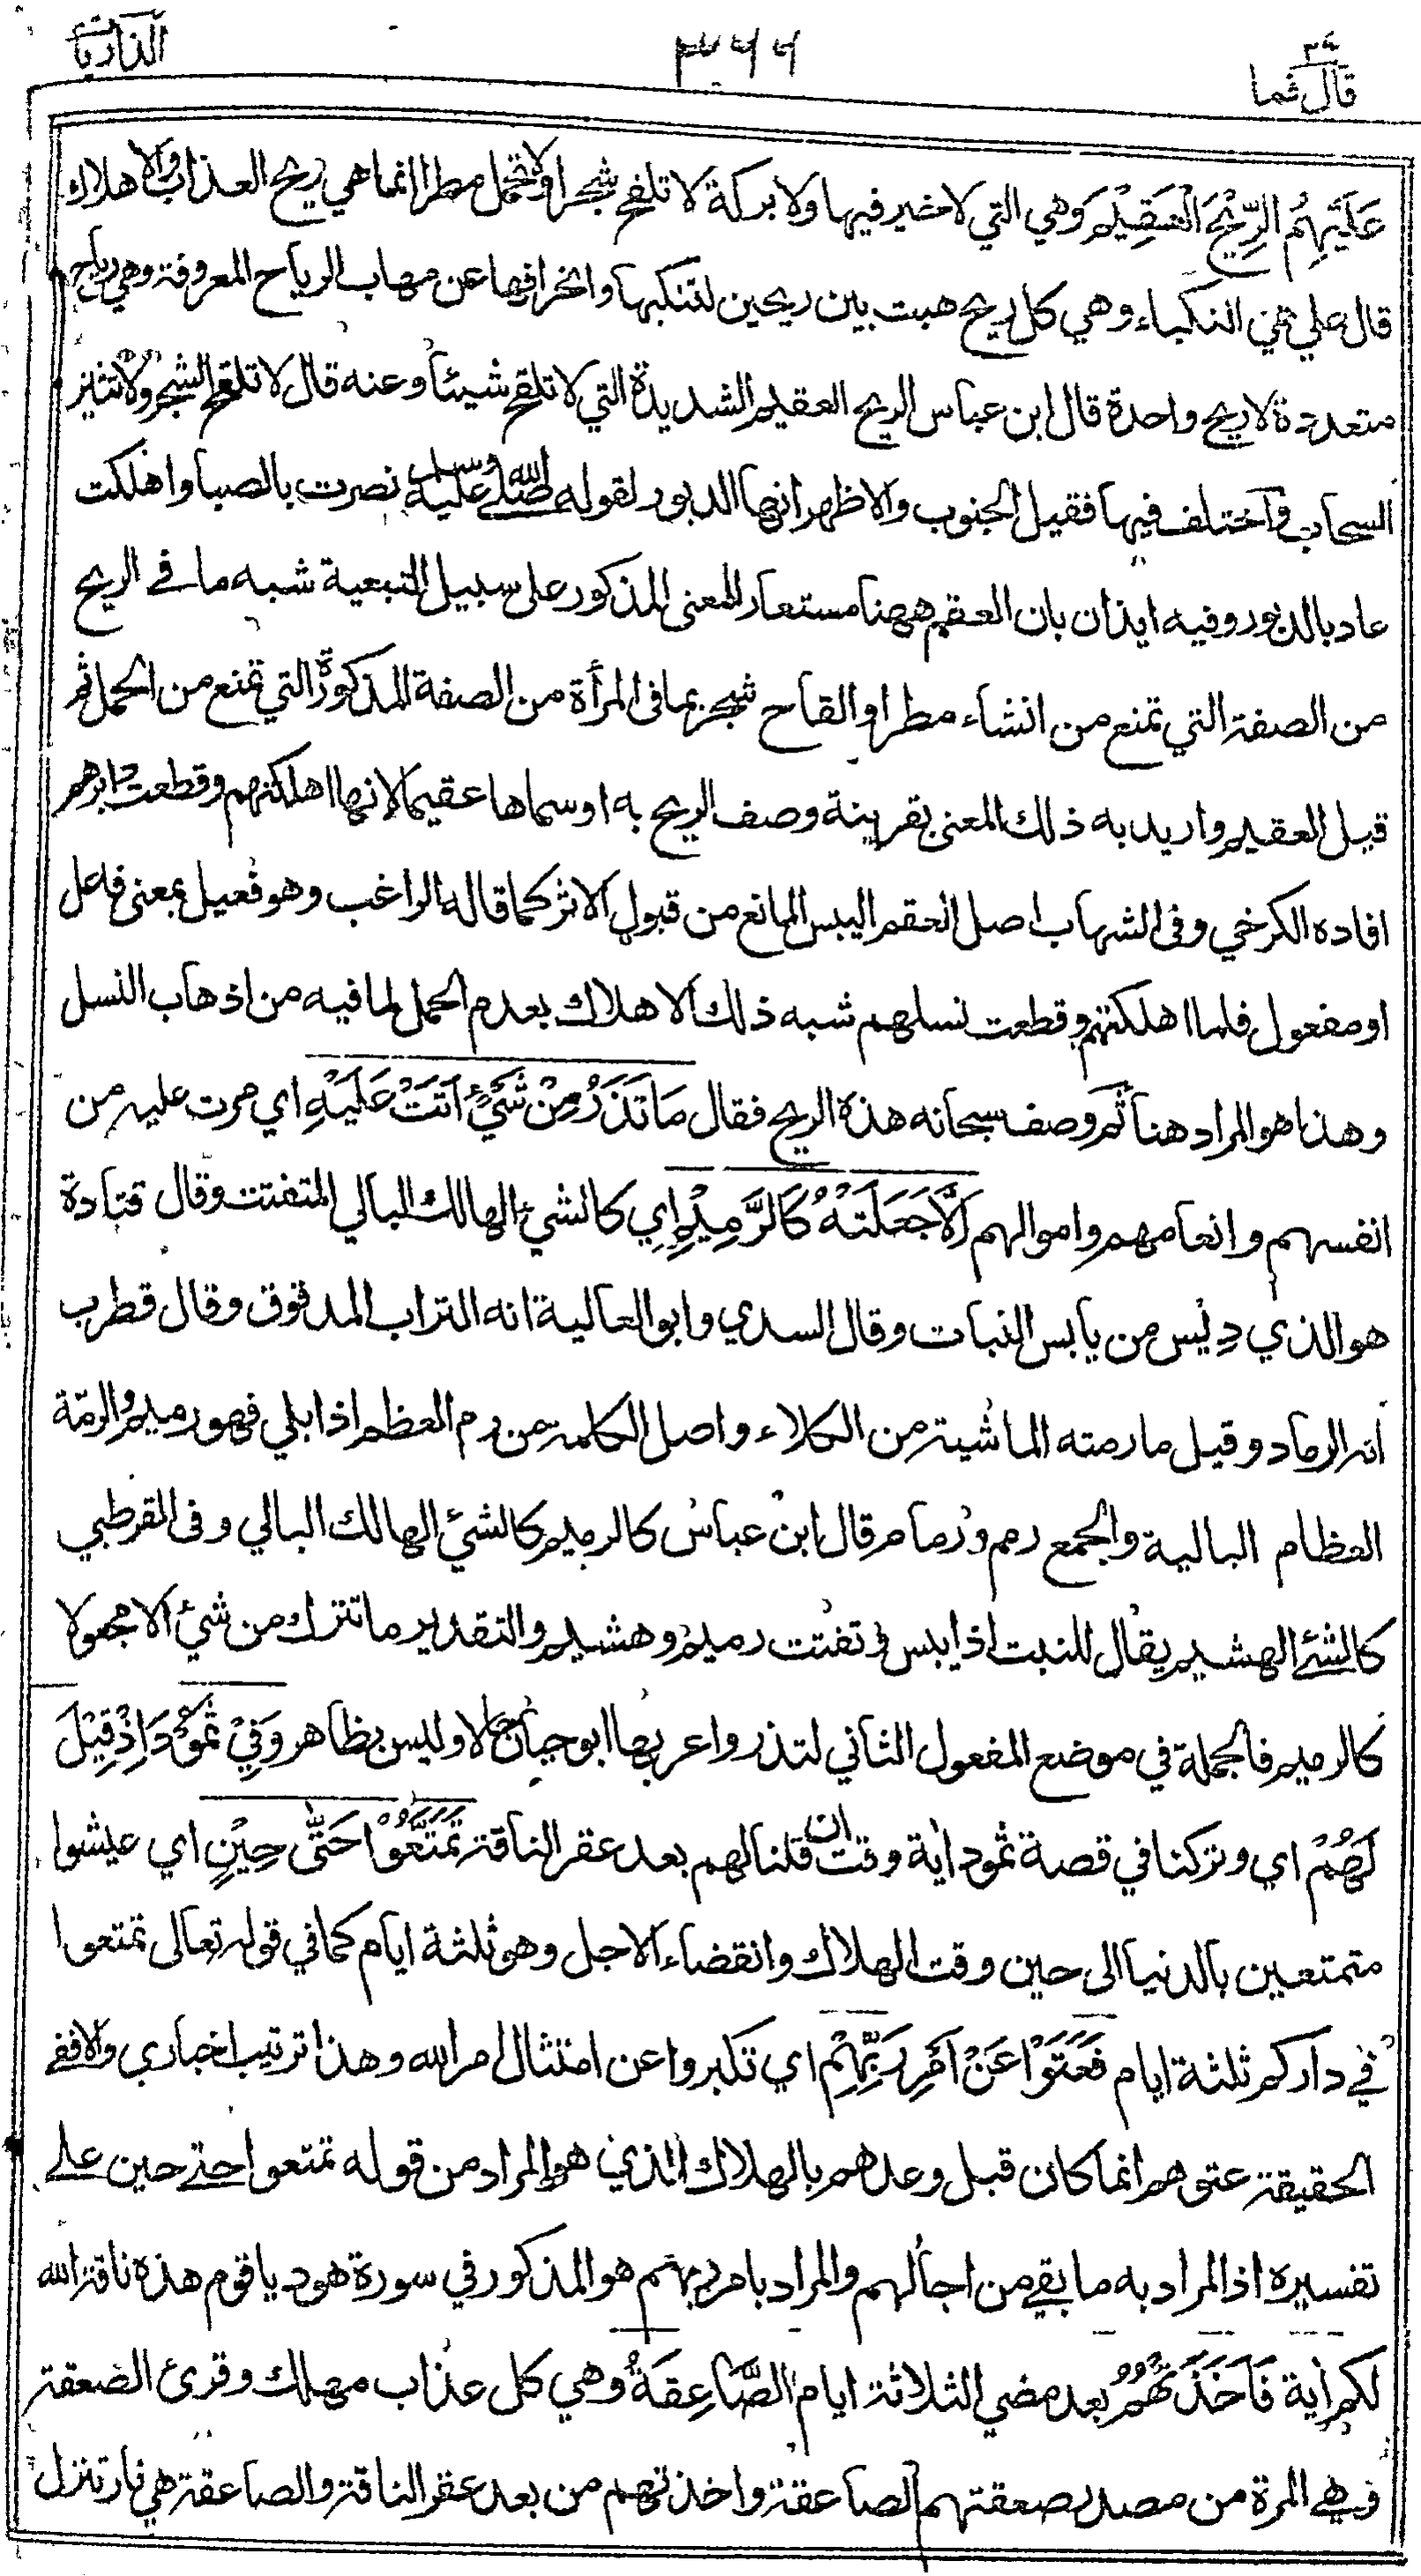 قال فما ٢٧
٣٦٦
الذاريات
عَلَيْهِمُ الرِّيْحَ الْعَقِيْمَ وهي التي لا خير فيها ولا بركة لا تلقح شجرا ولا تحمل مطرا انما هي ريح العذاب والاهلاك
قال علي هي النكباء وهي كل ريح هبت بين ريحين لتنكبها وانحرافها عن مهاب الرياح المعروفة وهي رياح
متعددة لا ريح واحدة قال ابن عباس الريح العقيم الشديدة التي لا تلقح شيئاً وعنه قال لا تلقح الشجر ولا تثير
السحاب وآختلف فيها فقيل الجنوب والاظهر انها الدبور لقوله صلى الله عليه وسلم نصرت بالصبا واهلكت
عاد بالدبور وفيه ايذان بان العقم ههنا مستعار للمعنى المذكور على سبيل التبعية شبه ما في الريح
من الصفة التي تمنع من انشاء مطر او القاح شجر بما فى المرأة من الصفة المذكورة التي تمنع من الحمل ثم
قيل العقيم واريد به ذلك المعنى بقرينة وصف الريح به او سماها عقيما لانها اهلكتهم وقطعت دابرهم
افاده الكرخي وفى الشهاب اصل العقم اليبس المانع من قبول الاثر كما قاله الراغب وهو فعيل بمعنى فاعل
او مفعول فلما اهلكتهم وقطعت نسلهم شبه ذلك الاهلاك بعدم الحمل لما فيه من اذهاب النسل
وهذا هو المراد هنا ثم وصف سبحانه هذه الريح فقال مَا تَذَرُ مِنْ شَيْءٍ اَتَتْ عَلَيْهِ اي مرت عليه من
انفسهم وانعامهم واموالهم اِلَّا جَعَلَتْهُ كَالرَّمِيْمِ اي كالشيء الهالك البالي المتفتت وقال قتادة
هو الذي دِيْس من يابس النبات وقال السدي وابو العالية انه التراب المدقوق وقال قطرب
انه الرماد وقيل ما رمته الماشية من الكلاء واصل الكلمة من رم العظم اذا بلي فهو رميم والرمّة
العظام البالية والجمع رمم ورمام قال ابن عباس كالرميم كالشيء الهالك البالي وفى القرطبي
كالشيء الهشيم يقال للنبت اذا يبس و تفتت رميم وهشيم والتقدير ما تترك من شيء الا مجعولا
كالرميم فالجملة في موضع المفعول الثاني لتذر واعربها ابو حيان حالا وليس بظاهر وَفِيْ ثَمُوْدَ اِذْ قِيْلَ
لَهُمْ اي وتركنا في قصة ثمود اٰية وقت ان قلنا لهم بعد عقر الناقة تَمَتَّعُوْا حَتّٰى حِيْنٍ اي عيشوا
متمتعين بالدنيا الى حين وقت الهلاك وانقضاء الاجل وهو ثلثة ايام كما في قوله تعالى تمتعوا
في داركم ثلثة ايام فَعَتَوْا عَنْ اَمْرِ رَبِّهِمْ اي تكبروا عن امتثال امر الله وهذا ترتيب اخباري والا ففي
الحقيقة عتوهم انما كان قبل وعدهم بالهلاك الذي هو المراد من قوله تمتعوا حتے حين علے
تفسيره اذ المراد به ما بقي من اجالهم والمراد بامر ربهم هو المذكور في سورة هود يا قوم هذه ناقة الله
لكم اٰية فَاَخَذَتْهُمُ بعد مضي الثلاثة ايام الصَّاعِقَةُ وهي كل عذاب مهلك وقرئ الصعقة
فهي المرة من مصدر صعقتهم الصاعقة واخذتهم من بعد عقر الناقة والصاعقة هي نار تنزل